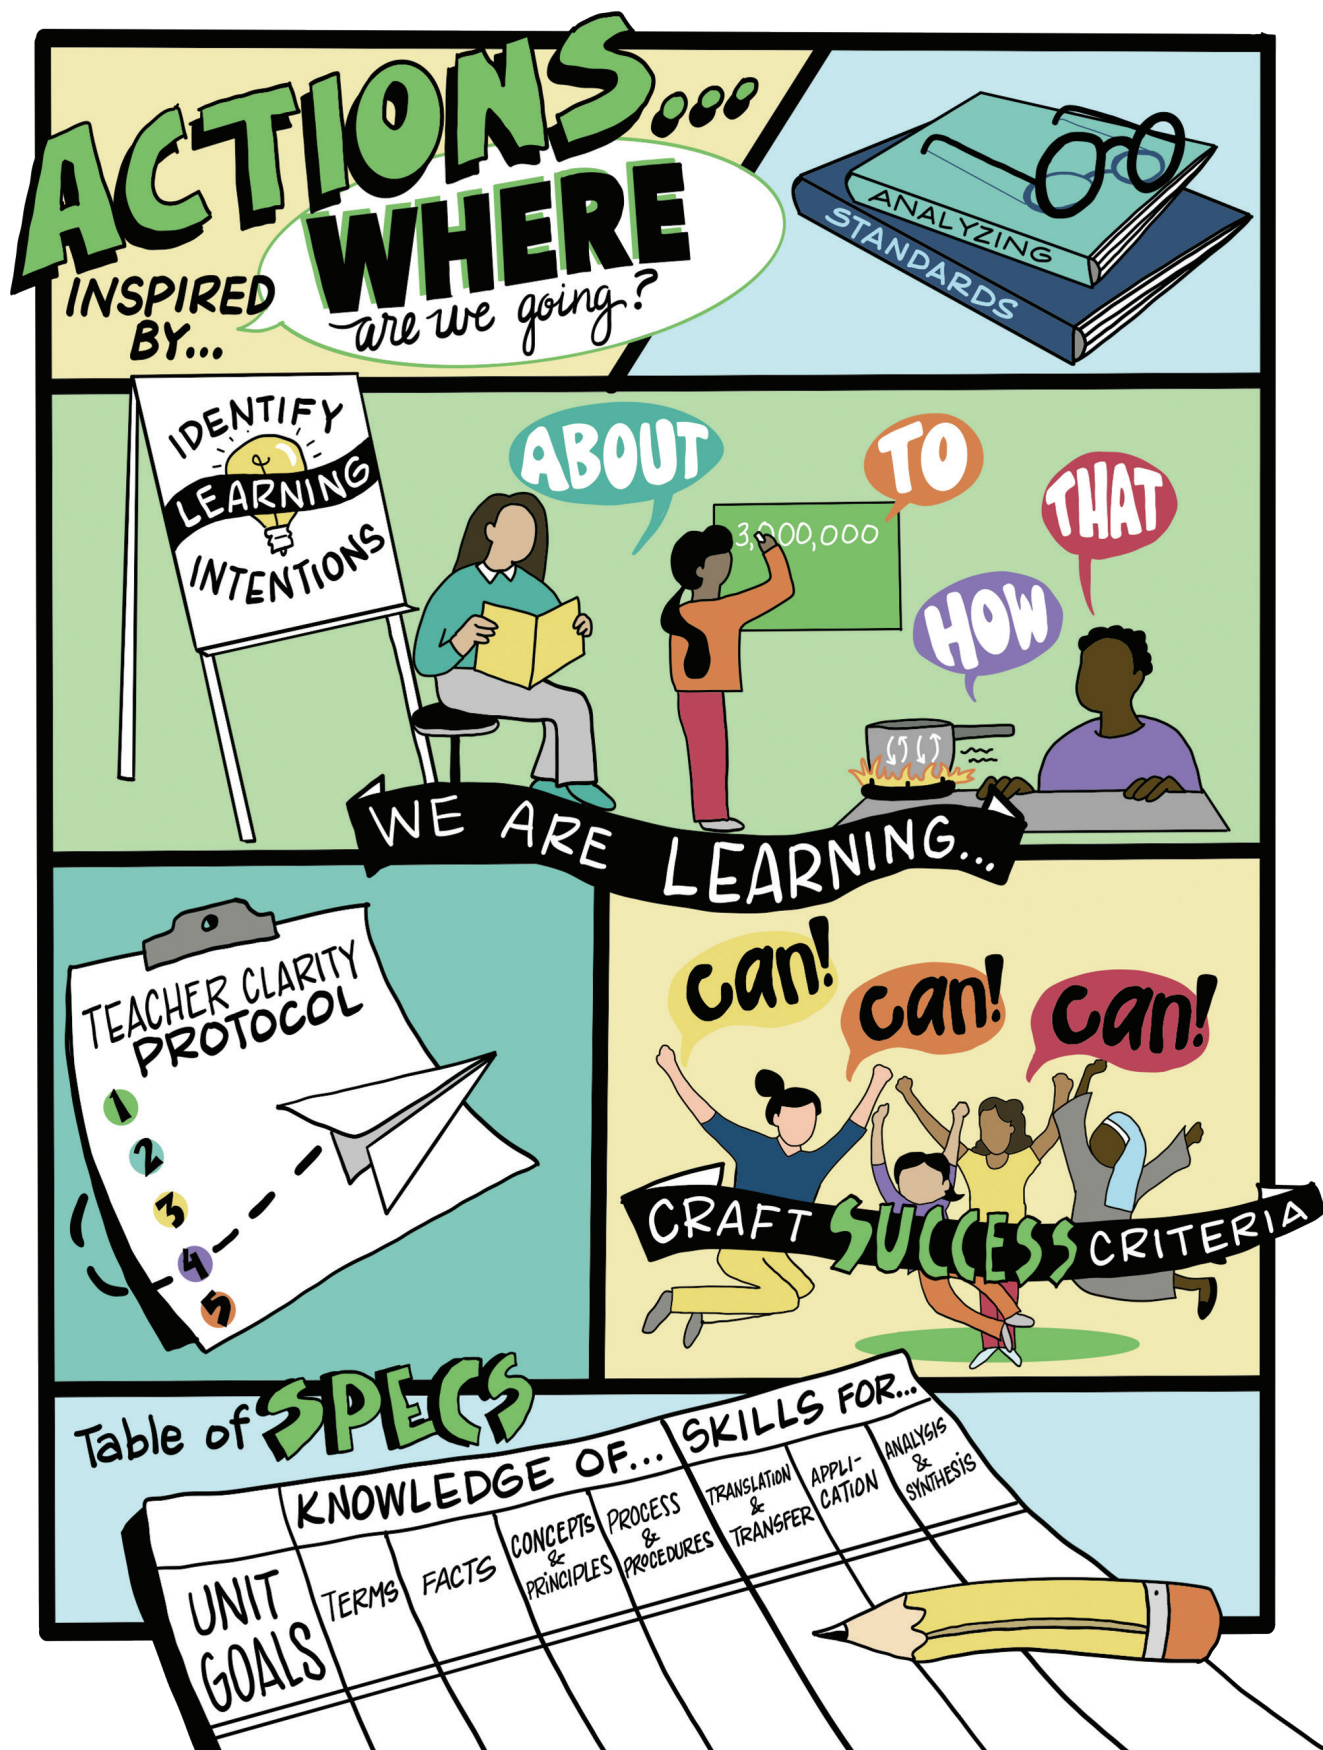 ACTIONS...
INSPIRED
BY...
WHERE
are we going?
ANALYZING
STANDARDS
IDENTIFY
LEARNING
INTENTIONS
ABOUT
TO
THAT
HOW
3,000,000
WE ARE LEARNING...
TEACHER CLARITY
PROTOCOL
1
2
3
4
5
can!
can!
can!
CRAFT SUCCESS CRITERIA
Table of SPECS
KNOWLEDGE OF...
SKILLS FOR...
UNIT
GOALS
TERMS
FACTS
CONCEPTS
&
PRINCIPLES
PROCESS
&
PROCEDURES
TRANSLATION
&
TRANSFER
APPLI-
CATION
ANALYSIS
&
SYNTHESIS